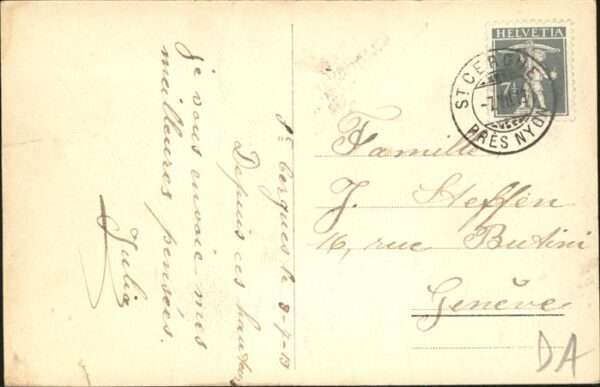 St Cergues le 8-7-13
Depuis ces hauteurs
je vous envoie mes
meilleures pensées.
Julia
HELVETIA
7½
ST CERGUE
PRÈS NYON
Famille
J. Steffen
16, rue Butini
Genève
DA